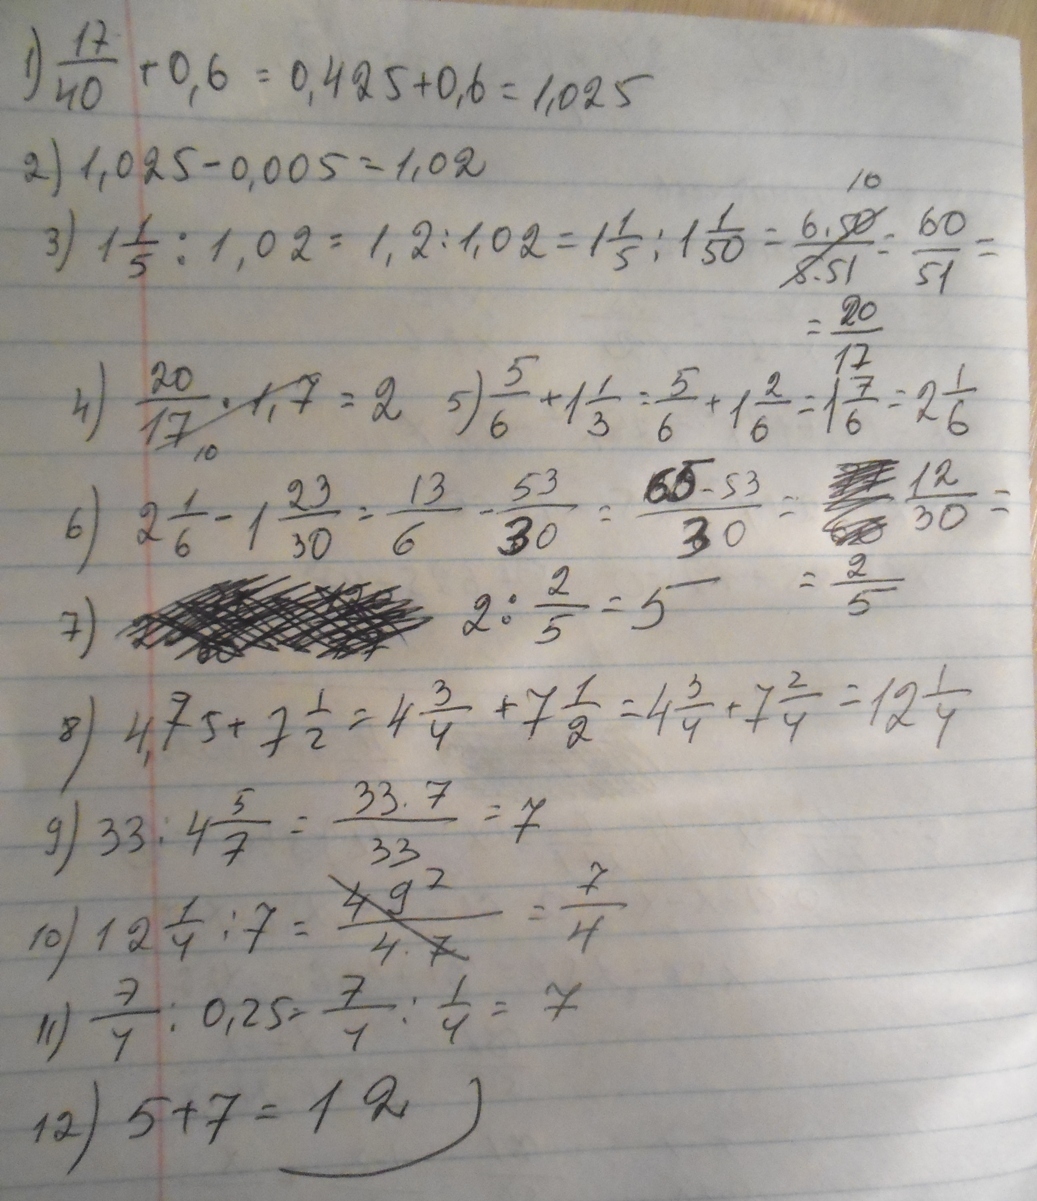 1) 17/40 + 0,6 = 0,425 + 0,6 = 1,025
2) 1,025 - 0,005 = 1,02
3) 1 1/5 : 1,02 = 1,2 : 1,02 = 1 1/5 : 1 1/50 = 6·50/5·51 10 = 60/51 =
= 20/17
4) 20/17 · 1,7 = 2 5) 5/6 + 1 1/3 = 5/6 + 1 2/6 = 1 7/6 = 2 1/6
10
6) 2 1/6 - 1 23/30 = 13/6 - 53/30 = 65-53/30 = 12/30 =
= 2/5
7) 2 : 2/5 = 5
8) 4,75 + 7 1/2 = 4 3/4 + 7 1/2 = 4 3/4 + 7 2/4 = 12 1/4
9) 33 : 4 5/7 = 33·7/33 = 7
10) 12 1/4 : 7 = 49/4·7 7 = 7/4
11) 7/4 : 0,25 = 7/4 : 1/4 = 7
12) 5 + 7 = 12